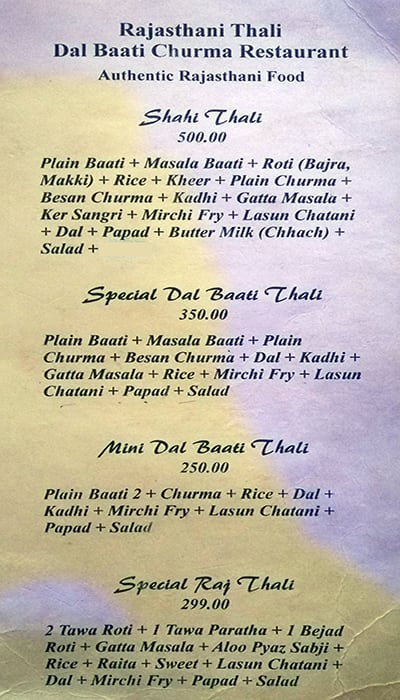 Rajasthani Thali
Dal Baati Churma Restaurant
Authentic Rajasthani Food
Shahi Thali
500.00
Plain Baati + Masala Baati + Roti (Bajra,
Makki) + Rice + Kheer + Plain Churma +
Besan Churma + Kadhi + Gatta Masala +
Ker Sangri + Mirchi Fry + Lasun Chatani
+ Dal + Papad + Butter Milk (Chhach) +
Salad +
Special Dal Baati Thali
350.00
Plain Baati + Masala Baati + Plain
Churma + Besan Churma + Dal + Kadhi +
Gatta Masala + Rice + Mirchi Fry + Lasun
Chatani + Papad + Salad
Mini Dal Baati Thali
250.00
Plain Baati 2 + Churma + Rice + Dal +
Kadhi + Mirchi Fry + Lasun Chatani +
Papad + Salad
Special Raj Thali
299.00
2 Tawa Roti + 1 Tawa Paratha + 1 Bejad
Roti + Gatta Masala + Aloo Pyaz Sabji +
Rice + Raita + Sweet + Lasun Chatani +
Dal + Mirchi Fry + Papad + Salad